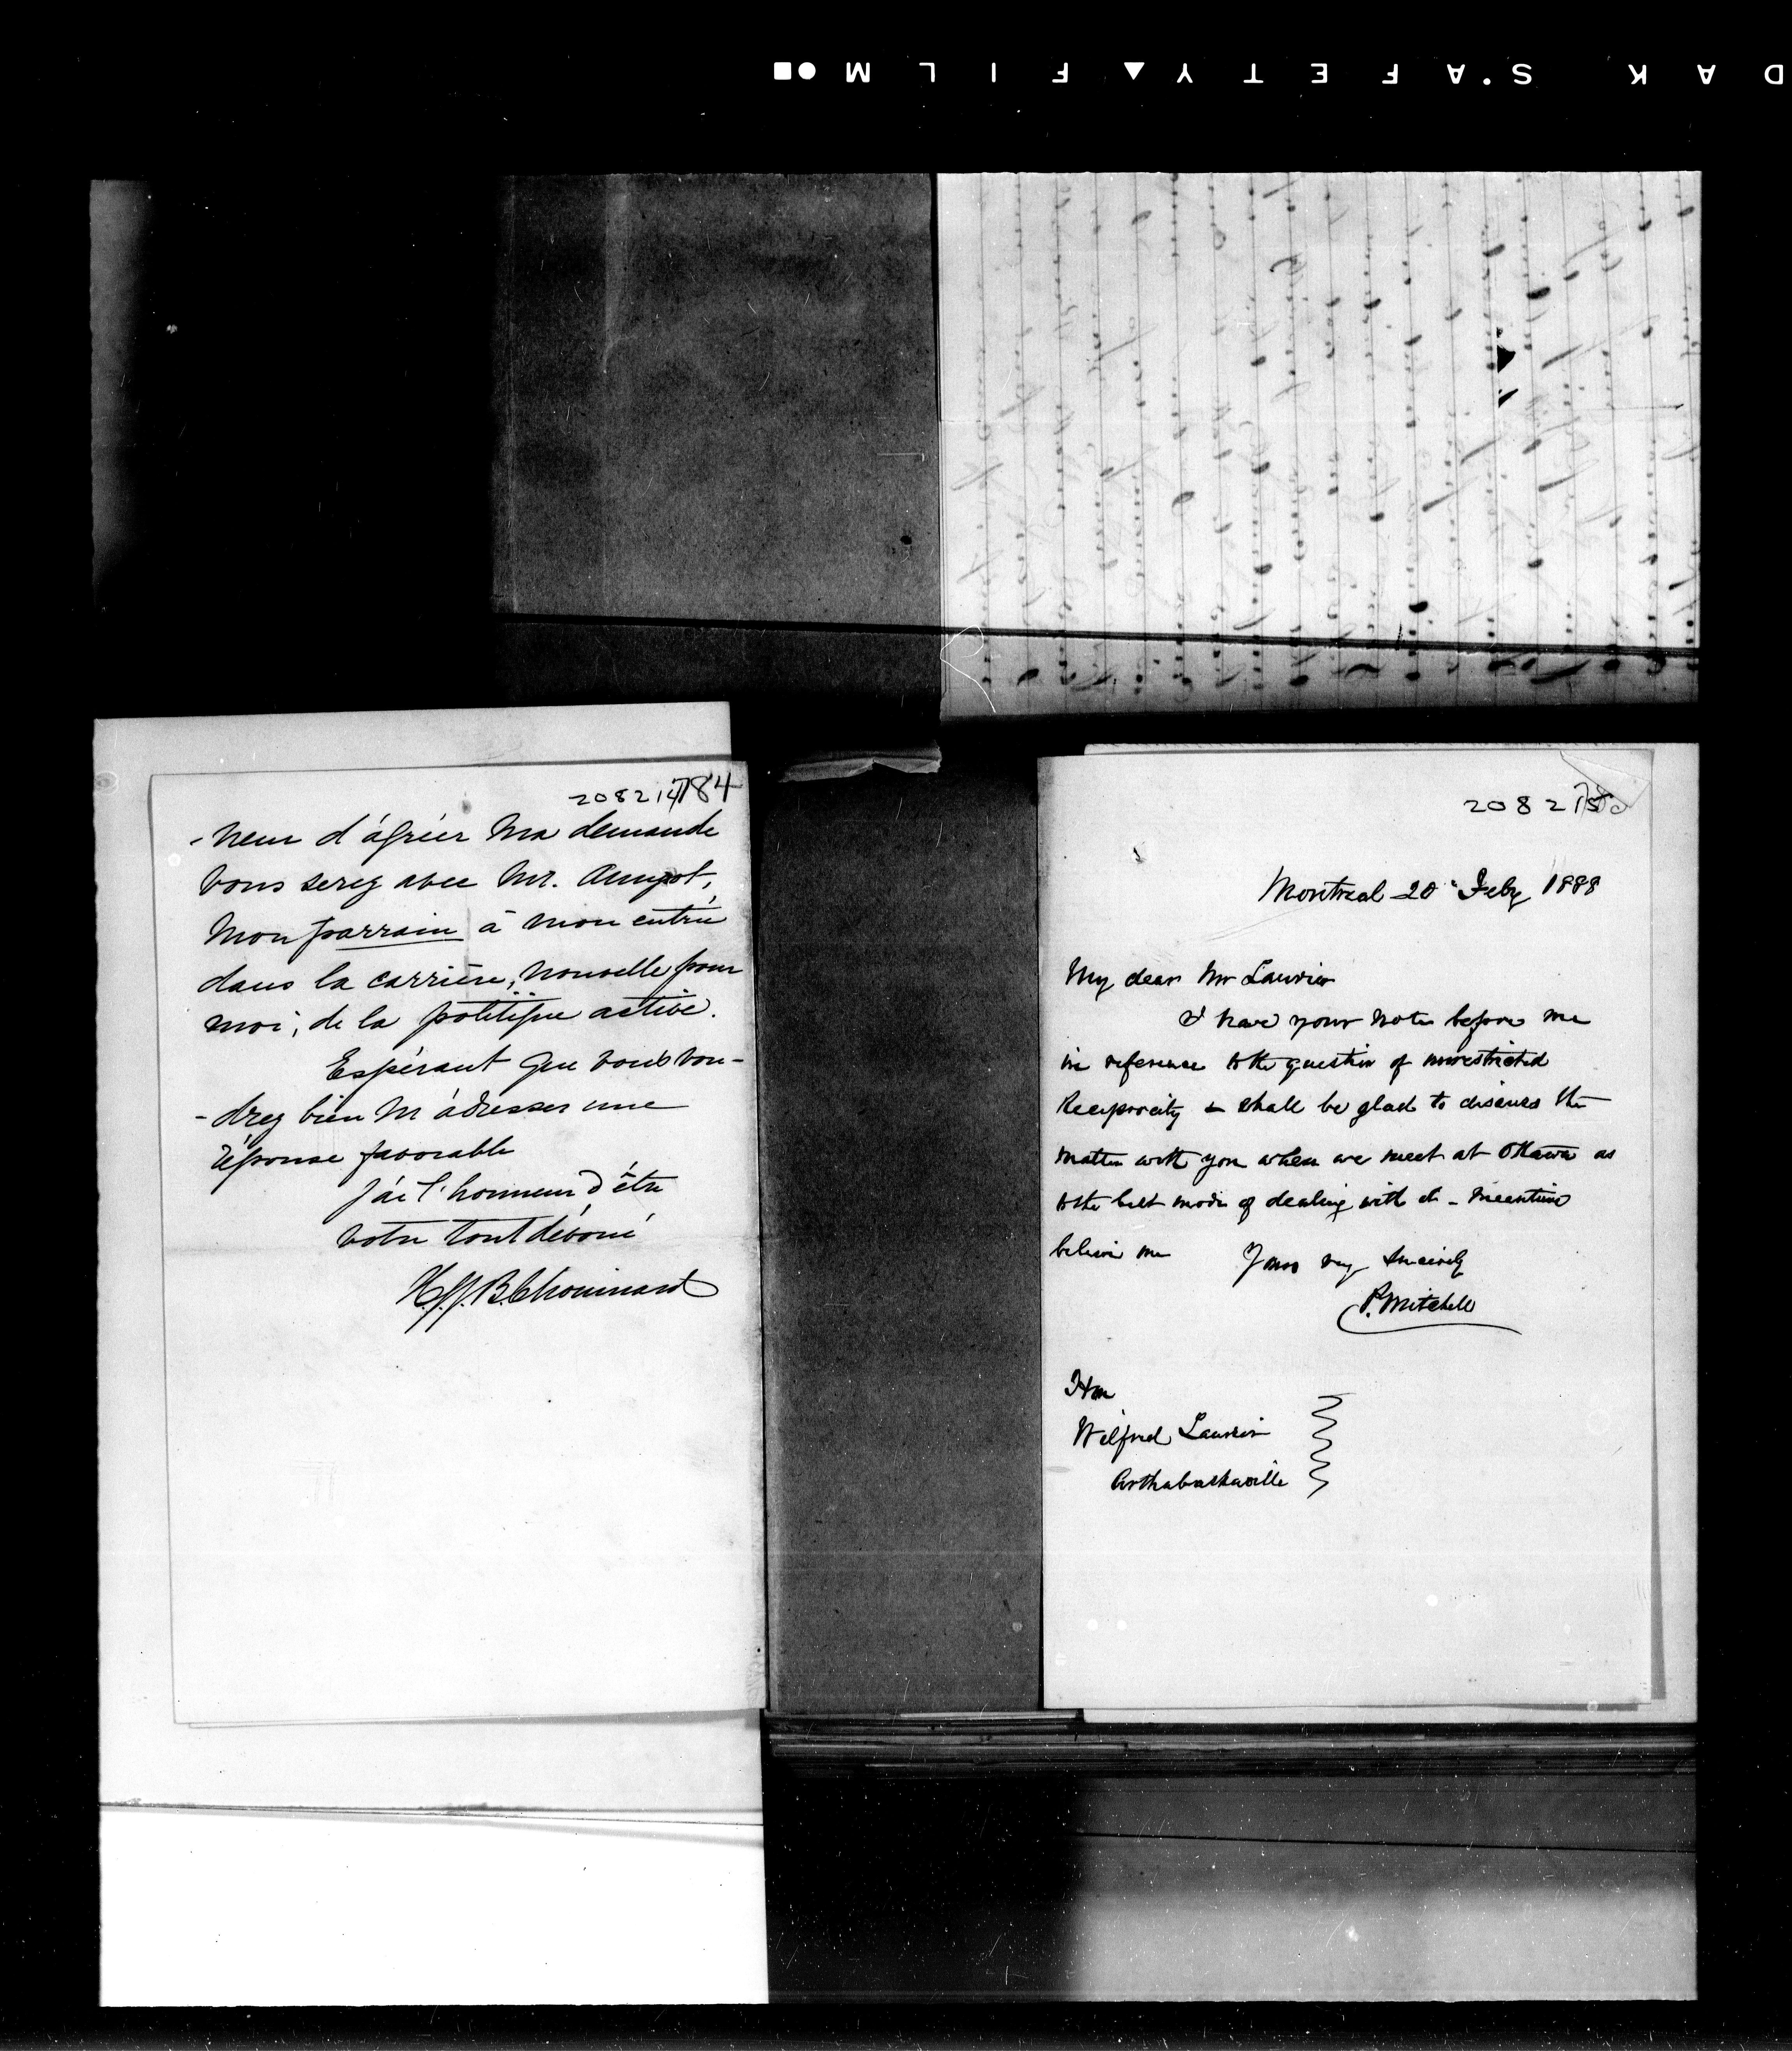 DAK S'AFETY▲FILM●■
208214 784
-neur d'agréer ma demande
vous serez avec Mr. Amyot,
mon parrain à mon entrée
dans la carrière, nouvelle pour
moi, de la politique active.
Espérant que vous vou-
-drez bien m'adresser une
réponse favorable
J'ai l'honneur d'être
votre tout dévoué
H.J.J.B. Chouinard
208215
Montreal 20 Feby 1888
My dear Mr Laurier
I have your note before me
in reference to the question of unrestricted
Reciprocity & shall be glad to discuss the
matter with you when we meet at Ottawa as
to the best mode of dealing with it - Meantime
believe me Yours very sincerely
P. Mitchell
Hon
Wilfred Laurier
Arthabaskaville